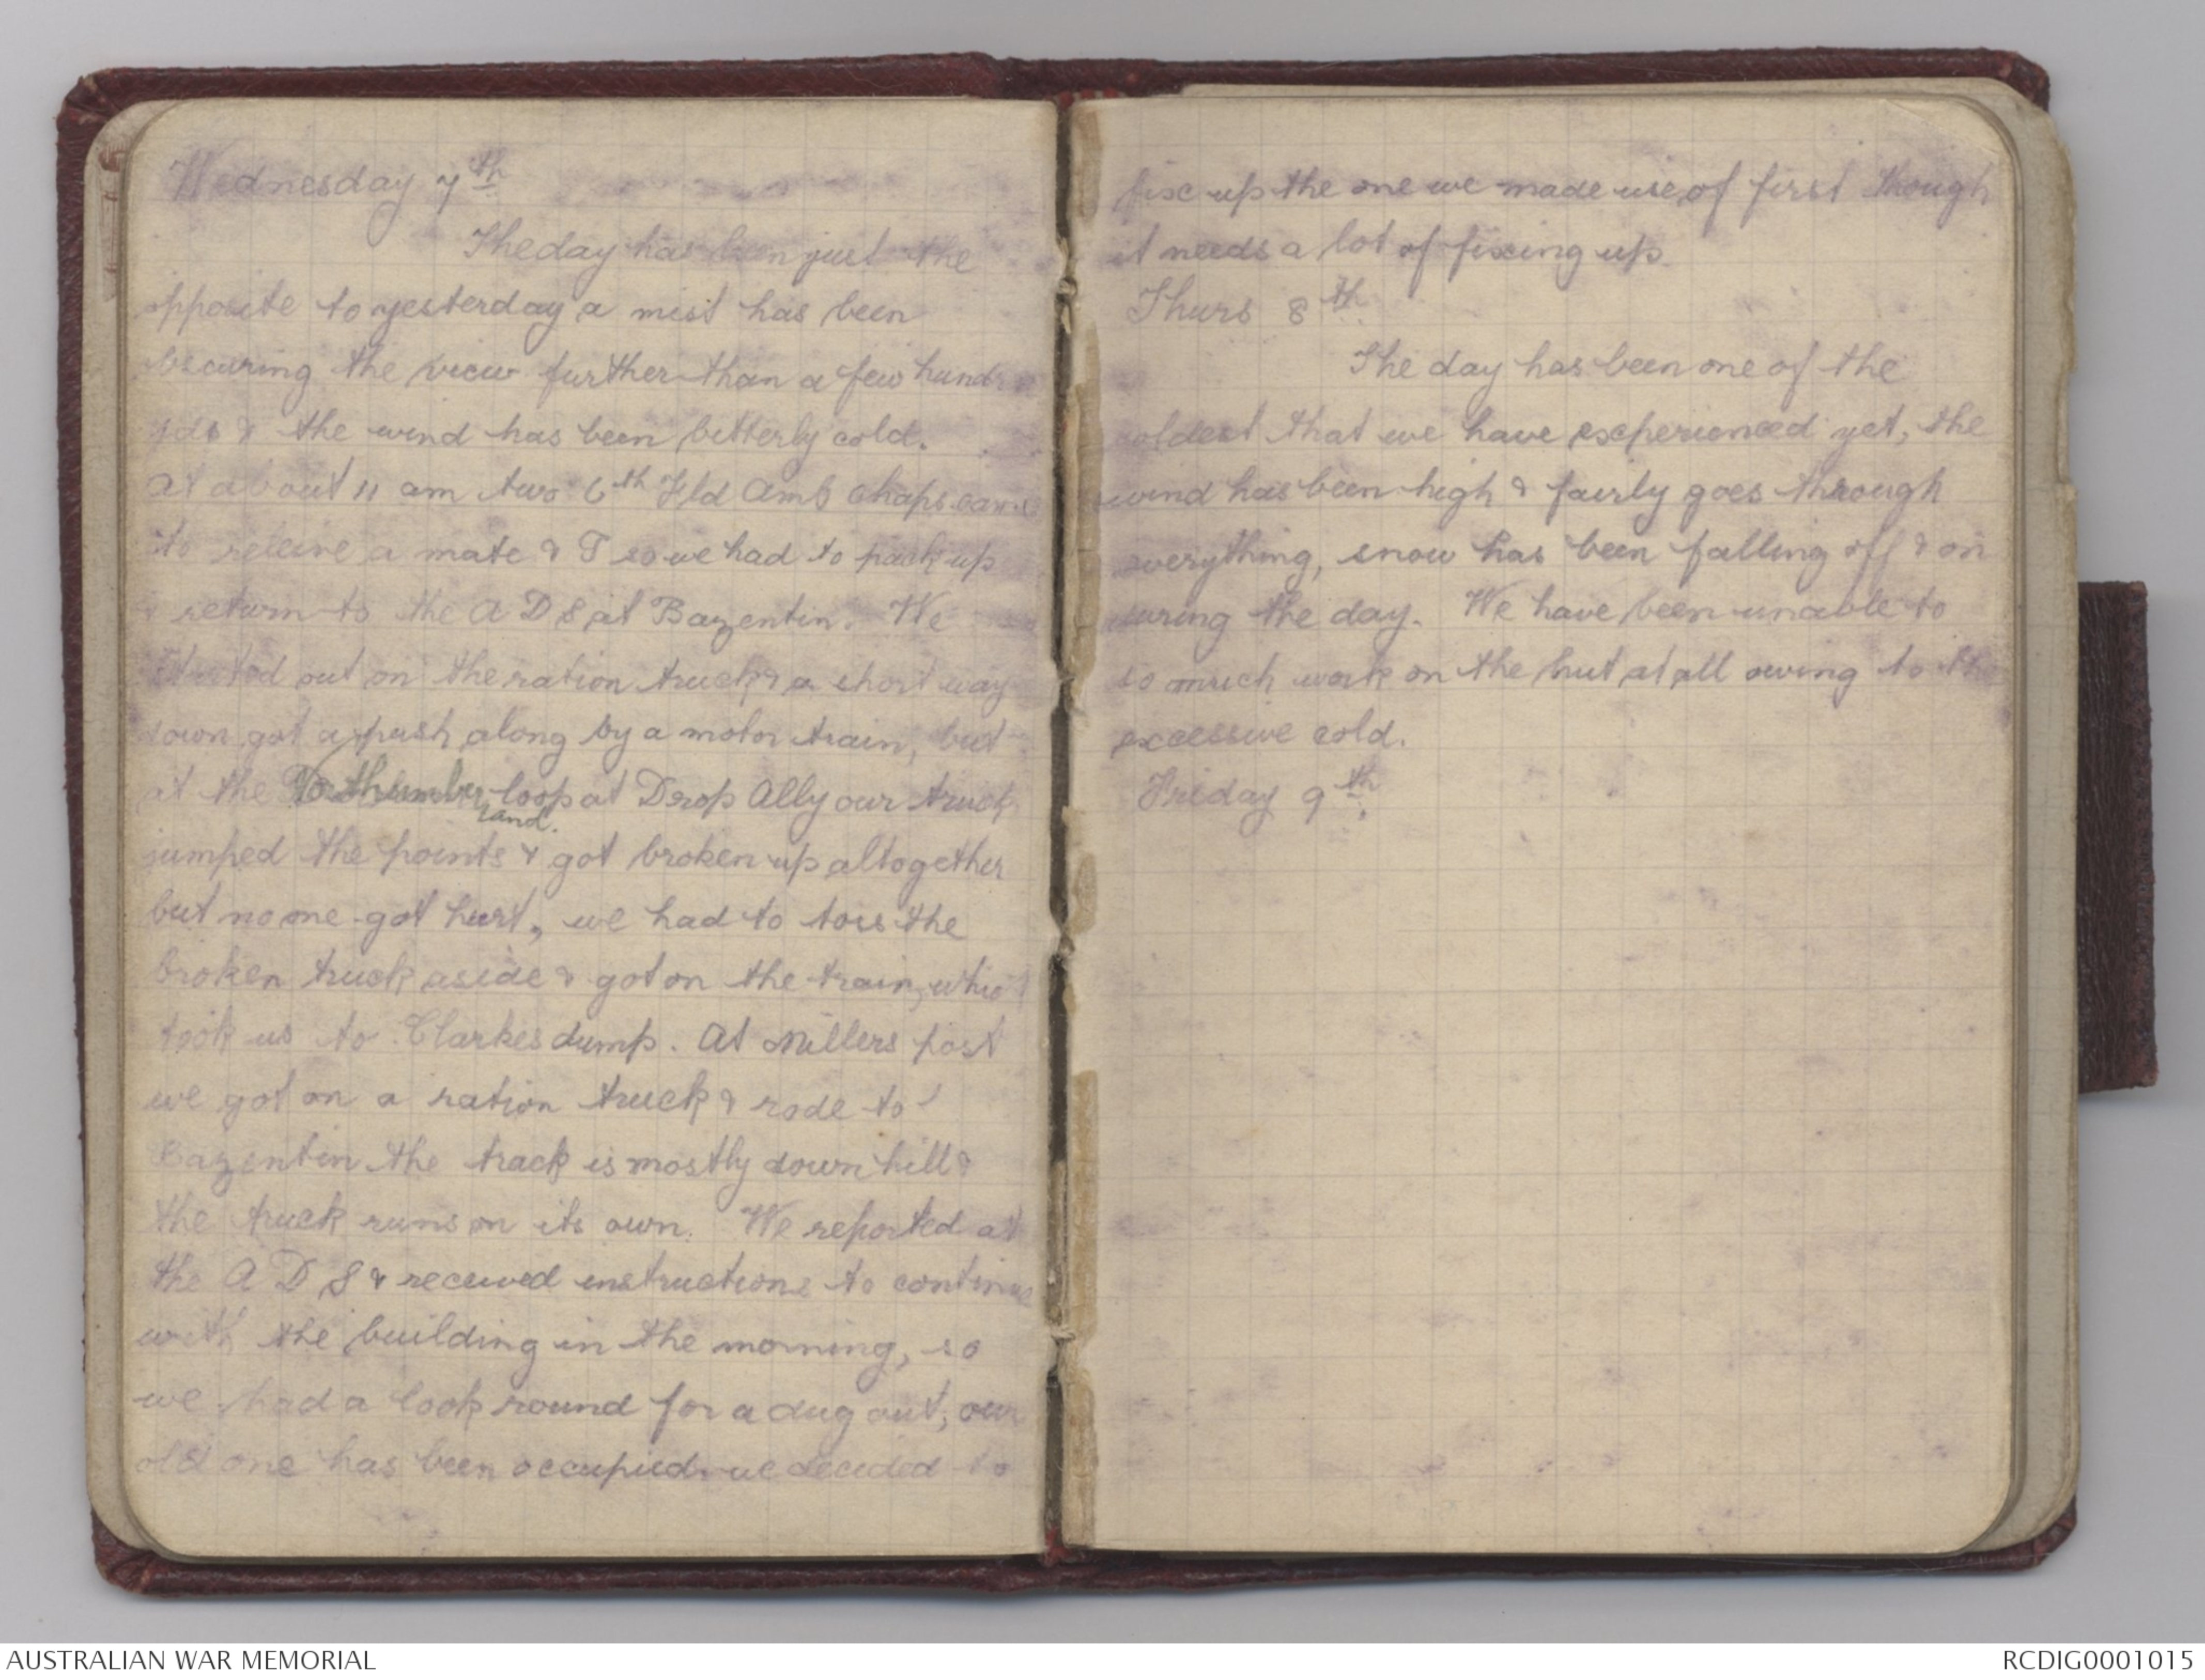 Wednesday 7th
The day has been just the
opposite to yesterday a mist has been
obscuring the view further than a few hundr
yds & the wind has been bitterly cold.
At about 11 am two 6th Fld Amb chaps came
to releive a mate & I so we had to pack up
& return to the A D S at Bazentin. We
started out on the ration truck & a short way
down got a push along by a motor train, but
at the Northumber loop at Drop Ally our truck
land.
jumped the points & got broken up altogether
but no one got hurt, we had to toss the
broken truck aside & got on the train, which
took us to Clarkes dump. At Millers post
we got on a ration truck & rode to
Bazentin the track is mostly down hill &
the truck runs on its own. We reported at
the A D S & received instructions to continue
with the building in the morning, so
we had a look round for a dug out, our
old one has been occupied we decided to
fix up the one we made use of first though
it needs a lot of fixing up.
Thurs 8th
The day has been one of the
coldest that we have experienced yet, the
wind has been high & fairly goes through
everything, snow has been falling off & on
during the day. We have been unable to
do much work on the hut at all owing to the
excessive cold.
Friday 9th.
AUSTRALIAN WAR MEMORIAL
RCDIG0001015